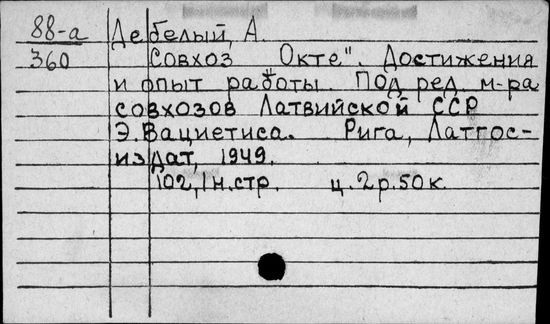 88-а Дебелый, А.
360 Совхоз "Окте". Достижения
и опыт работы. Под ред. м-ра
совхозов Латвийской ССР
Э. Вациетиса. Рига, Латгос-
издат, 1949.
102, 1 н. стр. ц. 2 р. 50 к.